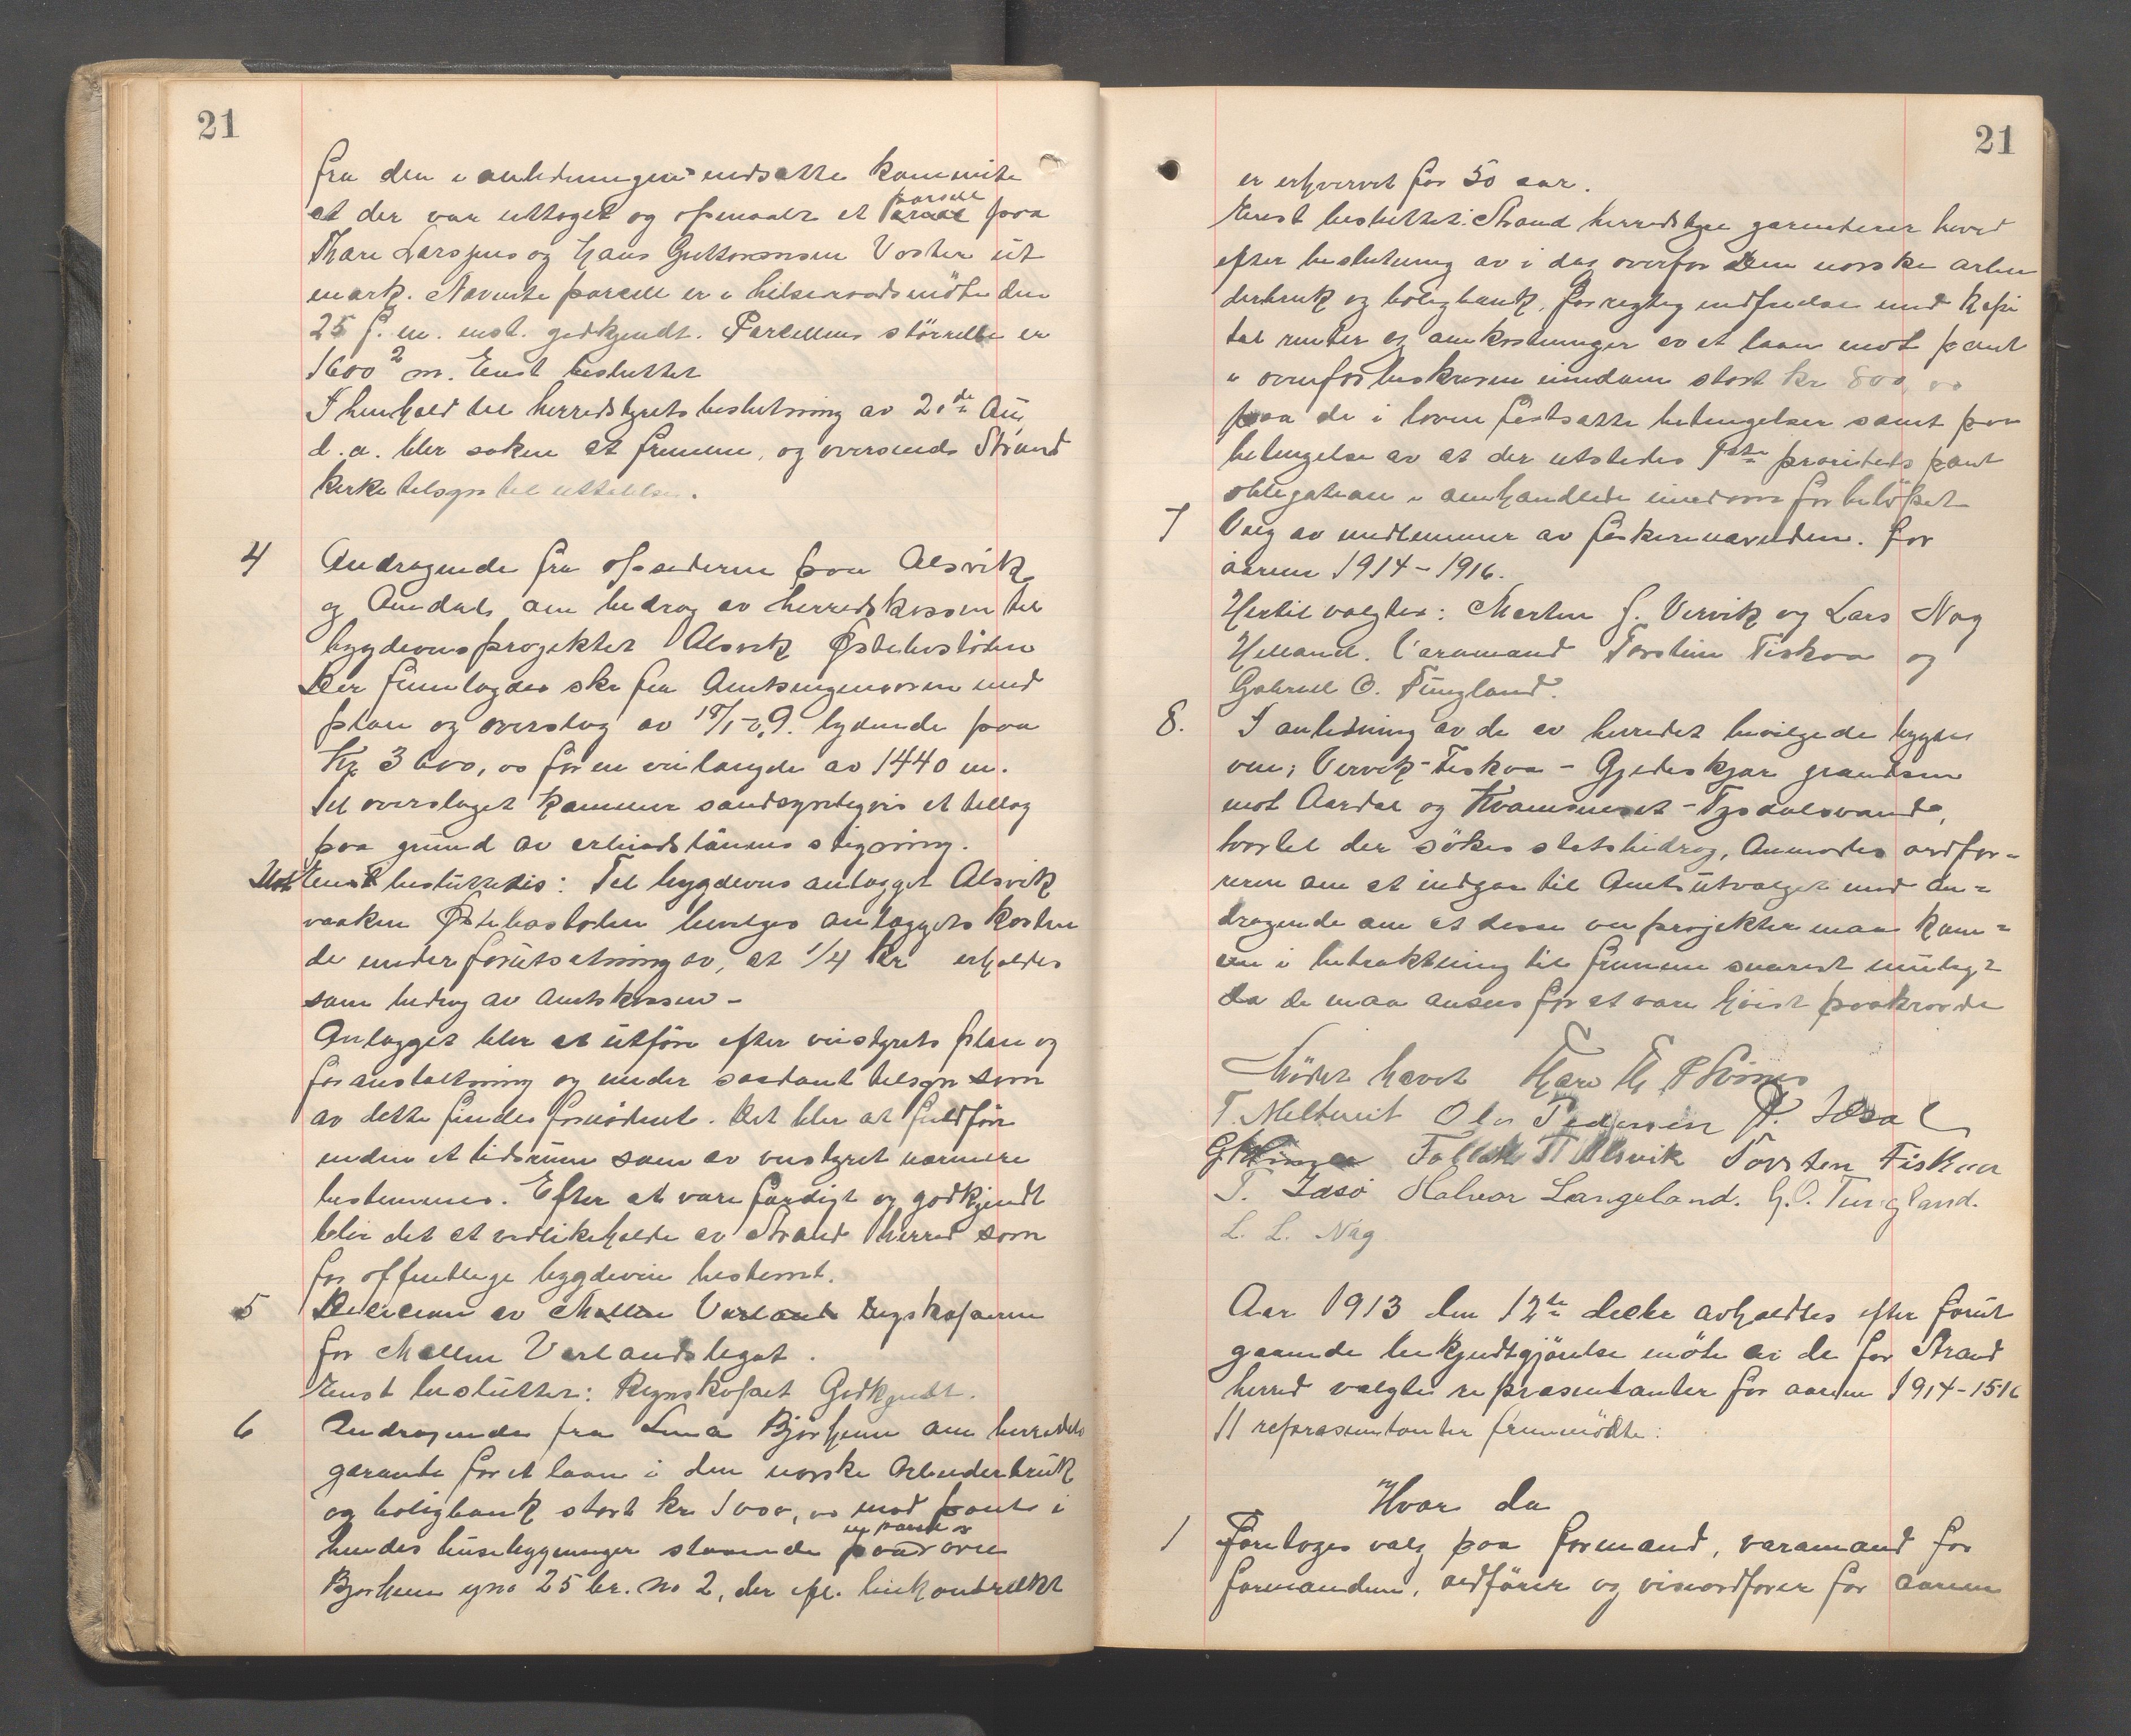 21
fra den i anledningen nedsatte kommite
at der var uttaget og opmaalt et parsell paa
Thore Larsens og Hans Guttormsen Vostee ut
mark. Nævnte parcell er i helseraadsmøte den
25 f. m. enst. godkjendt. Parcellens størrelse er
1600 ² m. Enst besluttet
I henhold til herredstyrets beslutning av 20de Aug
d. a. blir saken at fremme, og oversendes Strand
kirketilsyn til uttalelse.
4 Andragende fra opsiderne paa Alsvik
og Amdal om bedrag av herredskassen til
bygdeveisprojektet Alsvik Østebøstølen
Der fremlagdes skr fra Amtsingeniøren med
plan og overslag av 18/1-09. lydende paa
Kr 3600,00 for en veilængde av 1440 m.
Til overslaget kommer sandsynligvis et tillæg
paa grund av arbeidslønnens stigning.
Enst besluttedes: Til bygdeveis anlægget Alsvik
vaaken Østebøstølen bevilges anlæggets kosten
de under forutsætning av, at 1/4 kr erholdes
som bedrag av amtskassen -
Anlægget blir at utføre efter veistyrets plan og
foranstaltning og under saadant tilsyn som
av dette findes fornødent. Det blir at fuldføre
inden et tidsrum som av veistyret nærmere
bestemmes. Efter at være færdigt og godkjendt
blir det at vedlikeholde av Strand herred som
for offentlige bygdeveie bestemt.
5 Decision av Mallin Værland Regnskaperne
for Mallin Værlandslegat.
Enst besluttet: Regnskapet Godkjendt.
6 Andragende fra Lina Bjørheim om herredets
garante for et laan i den norske Arbeiderbruk
og boligbank stort kr 1000,00 mod pant i
hendes husebygninger staaende paa en parsel av
Bjørheim gno 25 br. no 2, der ifl. leiekontrakt
21
er erhvervet for 50 aar.
Enst besluttet: Strand herredstyre garenterer herved
efter beslutning av i dag overfor Den norske arbei
derbruk og boligbank, for rigtig indfrielse med kapi
tal renter og omkostninger av et laan mot pant
i ovenforbeskreven eiendom stort kr 800,00
paa de i loven fastsatte betingelser samt paa
betingelse av at der utstedes 1ste prioritets pant
obligation i omhandlede eiendom for beløpet
7 Valg av medlemmer av fiskerinævnden. for
aarene 1914-1916.
Hertil valgtes: Morten J. Vervik og Lars Nag
Helland. Varamænd Torsten Fiskaa og
Gabriel O. Tungland.
8. I anledning av de av herredet bevilgede bygde
veie; Vervik-Fiskaa - Gjedeskjær grændsen
mot Aardal og Kvamsneset-Tysdalsvand,
hvortil der søkes statsbidrag, Anmodes ordfør-
eren om at indgaa til Amtsutvalget med an-
dragende om at disse veiprojekter maa kom-
me i betraktning til fremme snarest muligt
da de maa ansees for at være høist paakrævde
Mødet hævet Tjære Th P Vivnes
T. Meltveit Ola Pedersen P. Idsal
Tollak T Alsvik Torsten Fiskaa
T. Idsø Halvor Langeland. G. O. Tungland.
L. L. Nag
Aar 1913 den 12te decbr avholdtes efter forut
gaaende bekjendtgjørelse møte av de for Strand
herred valgte repræsentanter for aarene 1914-15-16
11 repræsentanter fremmødte:
Hvor da
1 Foretoges valg paa formand, varamand for
formanden, ordfører og viseordfører for aarene